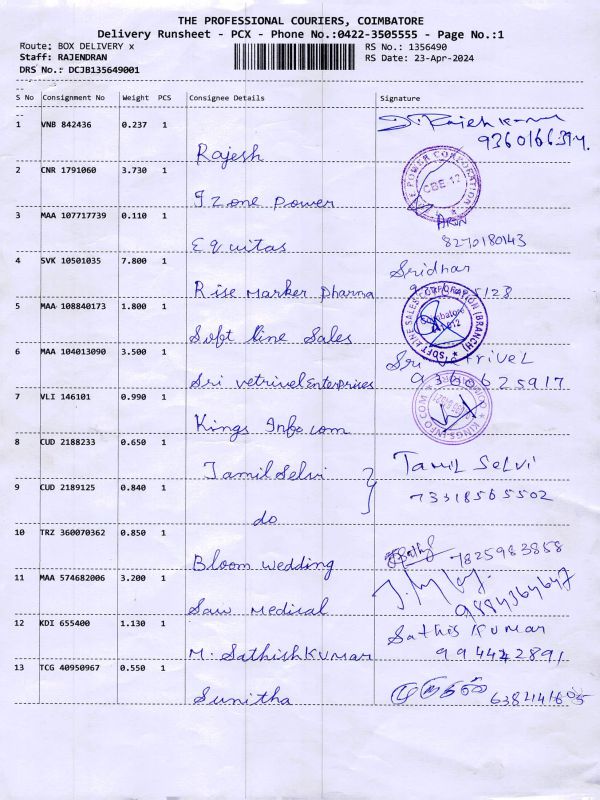 THE PROFESSIONAL COURIERS, COIMBATORE
Delivery Runsheet - PCX - Phone No.:0422-3505555 - Page No.:1
Route: BOX DELIVERY x
RS No.: 1356490
Staff: RAJENDRAN
RS Date: 23-Apr-2024
DRS No.: DCJB135649001
S No Consignment No Weight PCS Consignee Details Signature
1 VNB 842436 0.237 1
Rajesh
9360166394
2 CNR 1791060 3.730 1
9zone Power
POWER CORPORATION
CBE 12
3 MAA 107717739 0.110 1
Equitas
Arun
8270180143
4 SVK 10501035 7.800 1
Rise Marker Pharma
Sridhar
5128
5 MAA 108840173 1.800 1
Soft line Sales
SOFT LINE SALES CORPORATION (BRANCH)
Coimbatore
6 MAA 104013090 3.500 1
Sri vetrivel Enterprises
Sri Vetrivel
9360625917
7 VLI 146101 0.990 1
Kings Info com
KINGS INFO COM
8 CUD 2188233 0.650 1
Tamil Selvi
Tamil Selvi
9 CUD 2189125 0.840 1
do
73318565502
10 TRZ 360070362 0.850 1
Bloom wedding
7825983858
11 MAA 574682006 3.200 1
Saw. Medical
9884364647
12 KDI 655400 1.130 1
M. Sathish Kumar
Sathis Kumar
994442891
13 TCG 40950967 0.550 1
Sunitha
638441605